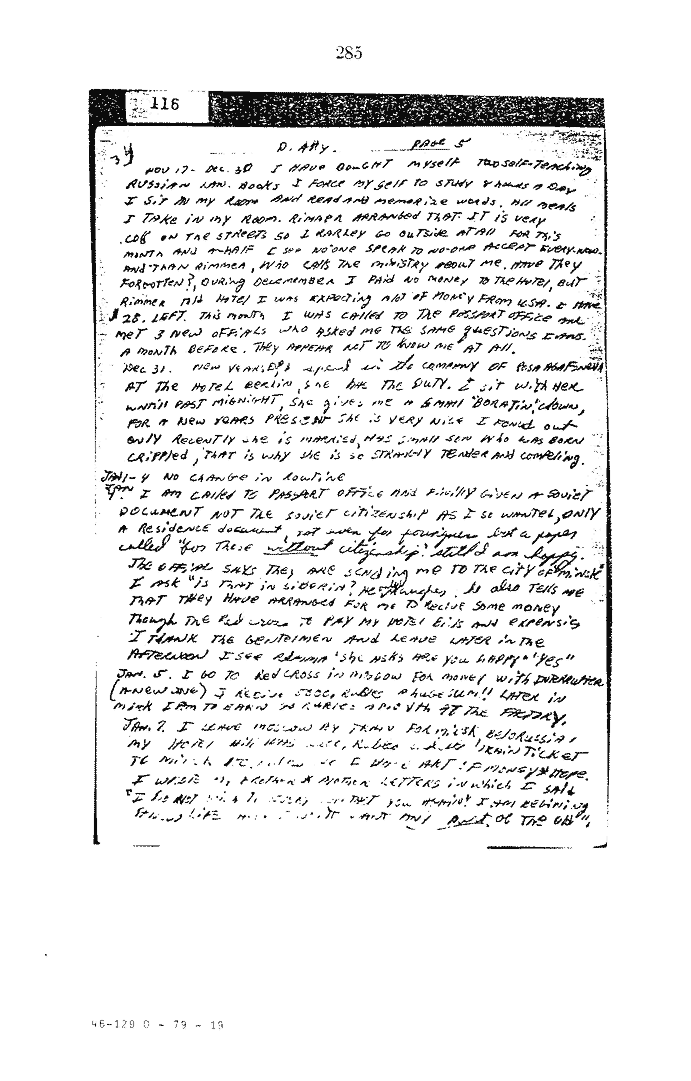 285
116
34
D. Ary. PAGE 5
NOV 17 - DEC. 30 I HAVE BOUGHT MYSELF TWO SELF-TEACHING
RUSSIAN LAN. BOOKS I FORCE MYSELF TO STUDY 8 HOURS A DAY
I SIT IN MY ROOM AND READ AND MEMORIZE WORDS. ALL MEALS
I TAKE IN MY ROOM. RIMMER ARRANGED THAT. IT IS VERY
COLD ON THE STREETS SO I RARLEY GO OUTSIDE AT ALL FOR THIS
MONTH AND A HALF I SEE NO ONE SPEAK TO NO-ONE ACCEPT EVERY-NOW-
AND-THAN RIMMER, WHO CALLS THE MINISTRY ABOUT ME. HAVE THEY
FORGOTTEN?, DURING DECEMEMBER I PAID NO MONEY TO THE HOTEL, BUT
RIMMER TOLD HOTEL I WAS EXPECTING A LOT OF MONEY FROM USA. I HAVE
$28. LEFT. THIS MONTH I WAS CALLED TO THE PASSPORT OFFICE AND
MET 3 NEW OFFIALS WHO ASKED ME THE SAME QUESTIONS I ANS.
A MONTH BEFORE. THEY APPEAR NOT TO KNOW ME AT ALL.
DEC 31. NEW YEARS, spend in the COMPANY OF ROSA AGAFONAVA
AT THE HOTEL BERLIN, SHE THE DUTY. I SIT WITH HER
UNTILL PAST MIDNIGHT, SHE gives ME A SMALL 'BORATIN' CLOWN,
FOR A NEW YEARS PRESENT SHE IS VERY NICE I FOUND out
ONLY RECENTLY SHE IS MARRIED, HAS SMALL SON WHO WAS BORN
CRIPPLED, THAT IS WHY SHE IS SO STRANGLY TENDER AND COMPELING.
JAN 1-4 NO CHANGE IN ROUTINE
JAN I AM CALLED TO PASSPORT OFFICE AND FINILLY GIVEN A SOVIET
DOCUMENT NOT THE SOVIET CITIZENSHIP AS I SO WANTED, ONLY
A RESIDENCE document, not even for but a paper
called "for those without citizenship." still I am happy.
THE OFFIAL SAYS THEY ARE SENDING ME TO THE CITY OF "MINSK"
I ASK "IS THAT IN SIBERIA? He laughes. he also TELLS ME
THAT THEY HAVE ARRANGED FOR ME TO RECIVE SOME MONEY
Though THE Red cross TO PAY MY HOTEL BILLS AND EXPENSIS
I THANK THE GENTELMEN AND LEAVE LATER IN THE
AFTERNOON I SEE RIMMA "SHE ASKS ARE YOU HAPPY" "YES"
JAN. 5. I GO TO RED CROSS IN MOSCOW FOR MONEY WITH
(A NEW ONE) I RECIVE 5000, RUBLES A HUGE SUM!! LATER IN
MINSK I AM TO EARN RUBLES A MONTH AT THE FACTORY.
JAN. 7. I LEAVE MOSCOW BY TRAIN FOR MISK, BELORUSSIA.
MY HOTEL BILL WAS RUBLES TRAIN TICKET
TO MINSK SO I HAVE A LOT OF MONEY & HOPE.
I WROTE MY BROTHER & MOTHER LETTERS in which I SAID
"I DO NOT WISH TO EVERY CONTACT YOU AGAIN." I AM BEGINING
LIFE AND I DON'T WANT ANY PART OF THE OLD".
46-129 O - 79 - 19